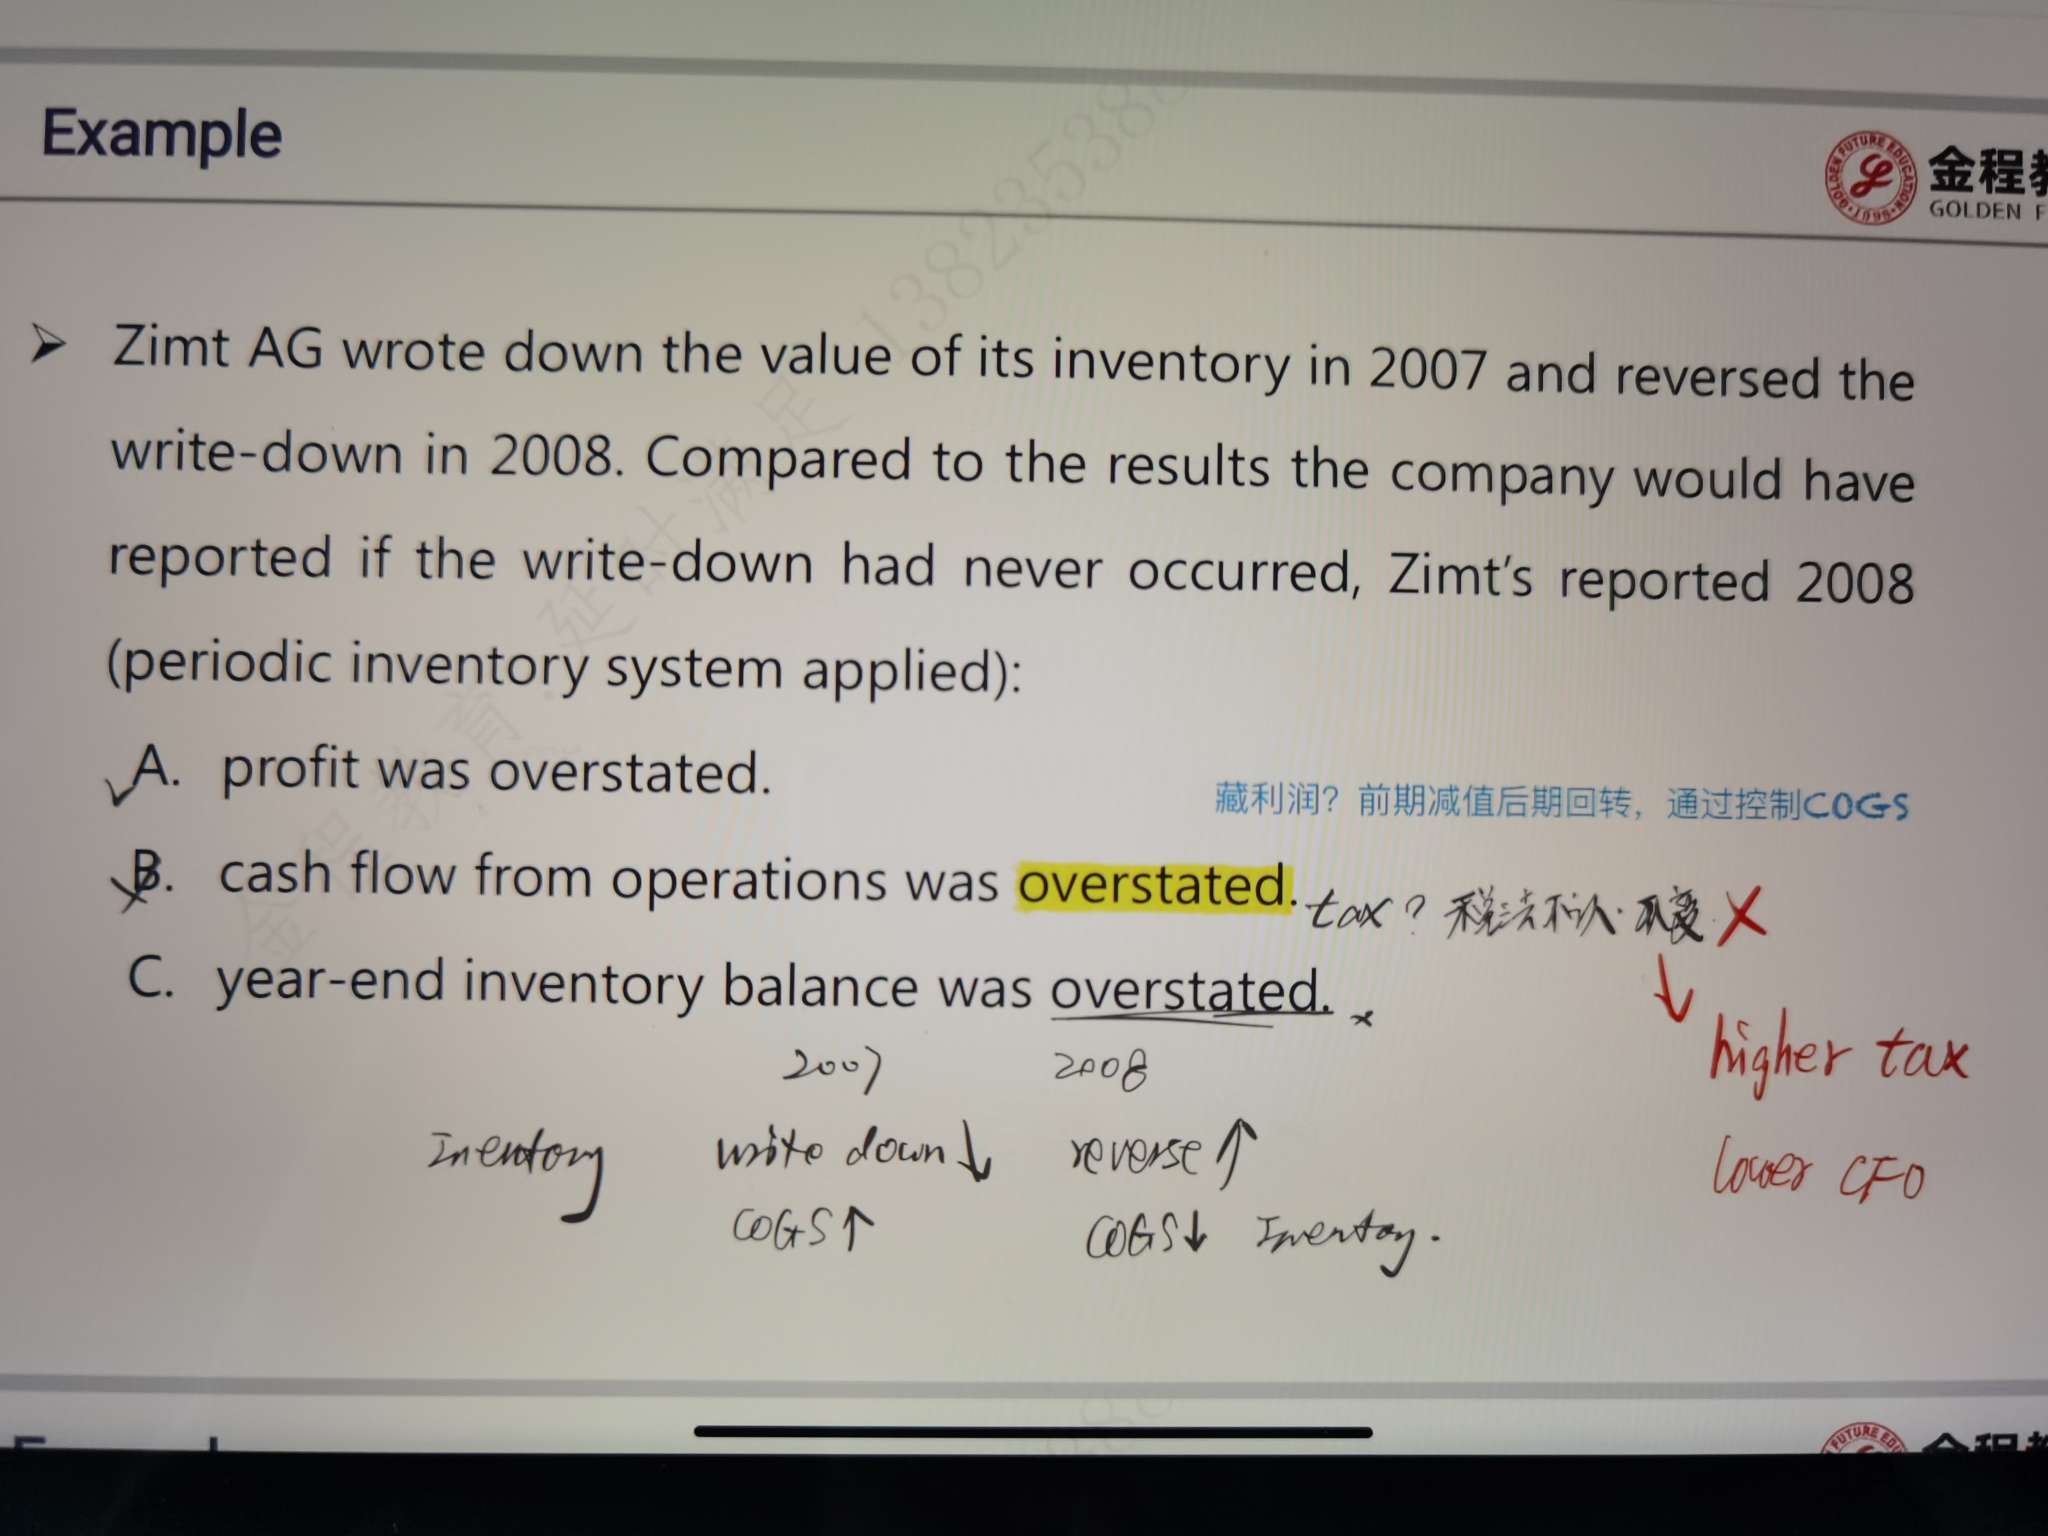 Example
金程教
GOLDEN F
Zimt AG wrote down the value of its inventory in 2007 and reversed the
write-down in 2008. Compared to the results the company would have
reported if the write-down had never occurred, Zimt's reported 2008
(periodic inventory system applied):
A. profit was overstated.
藏利润？前期减值后期回转，通过控制COGS
B. cash flow from operations was overstated. tax? 税法不认. 不变. X
C. year-end inventory balance was overstated. x
higher tax
lower CFO
2007 2008
Inventory write down ↓ reverse ↑
COGS ↑ COGS ↓ Inventory.